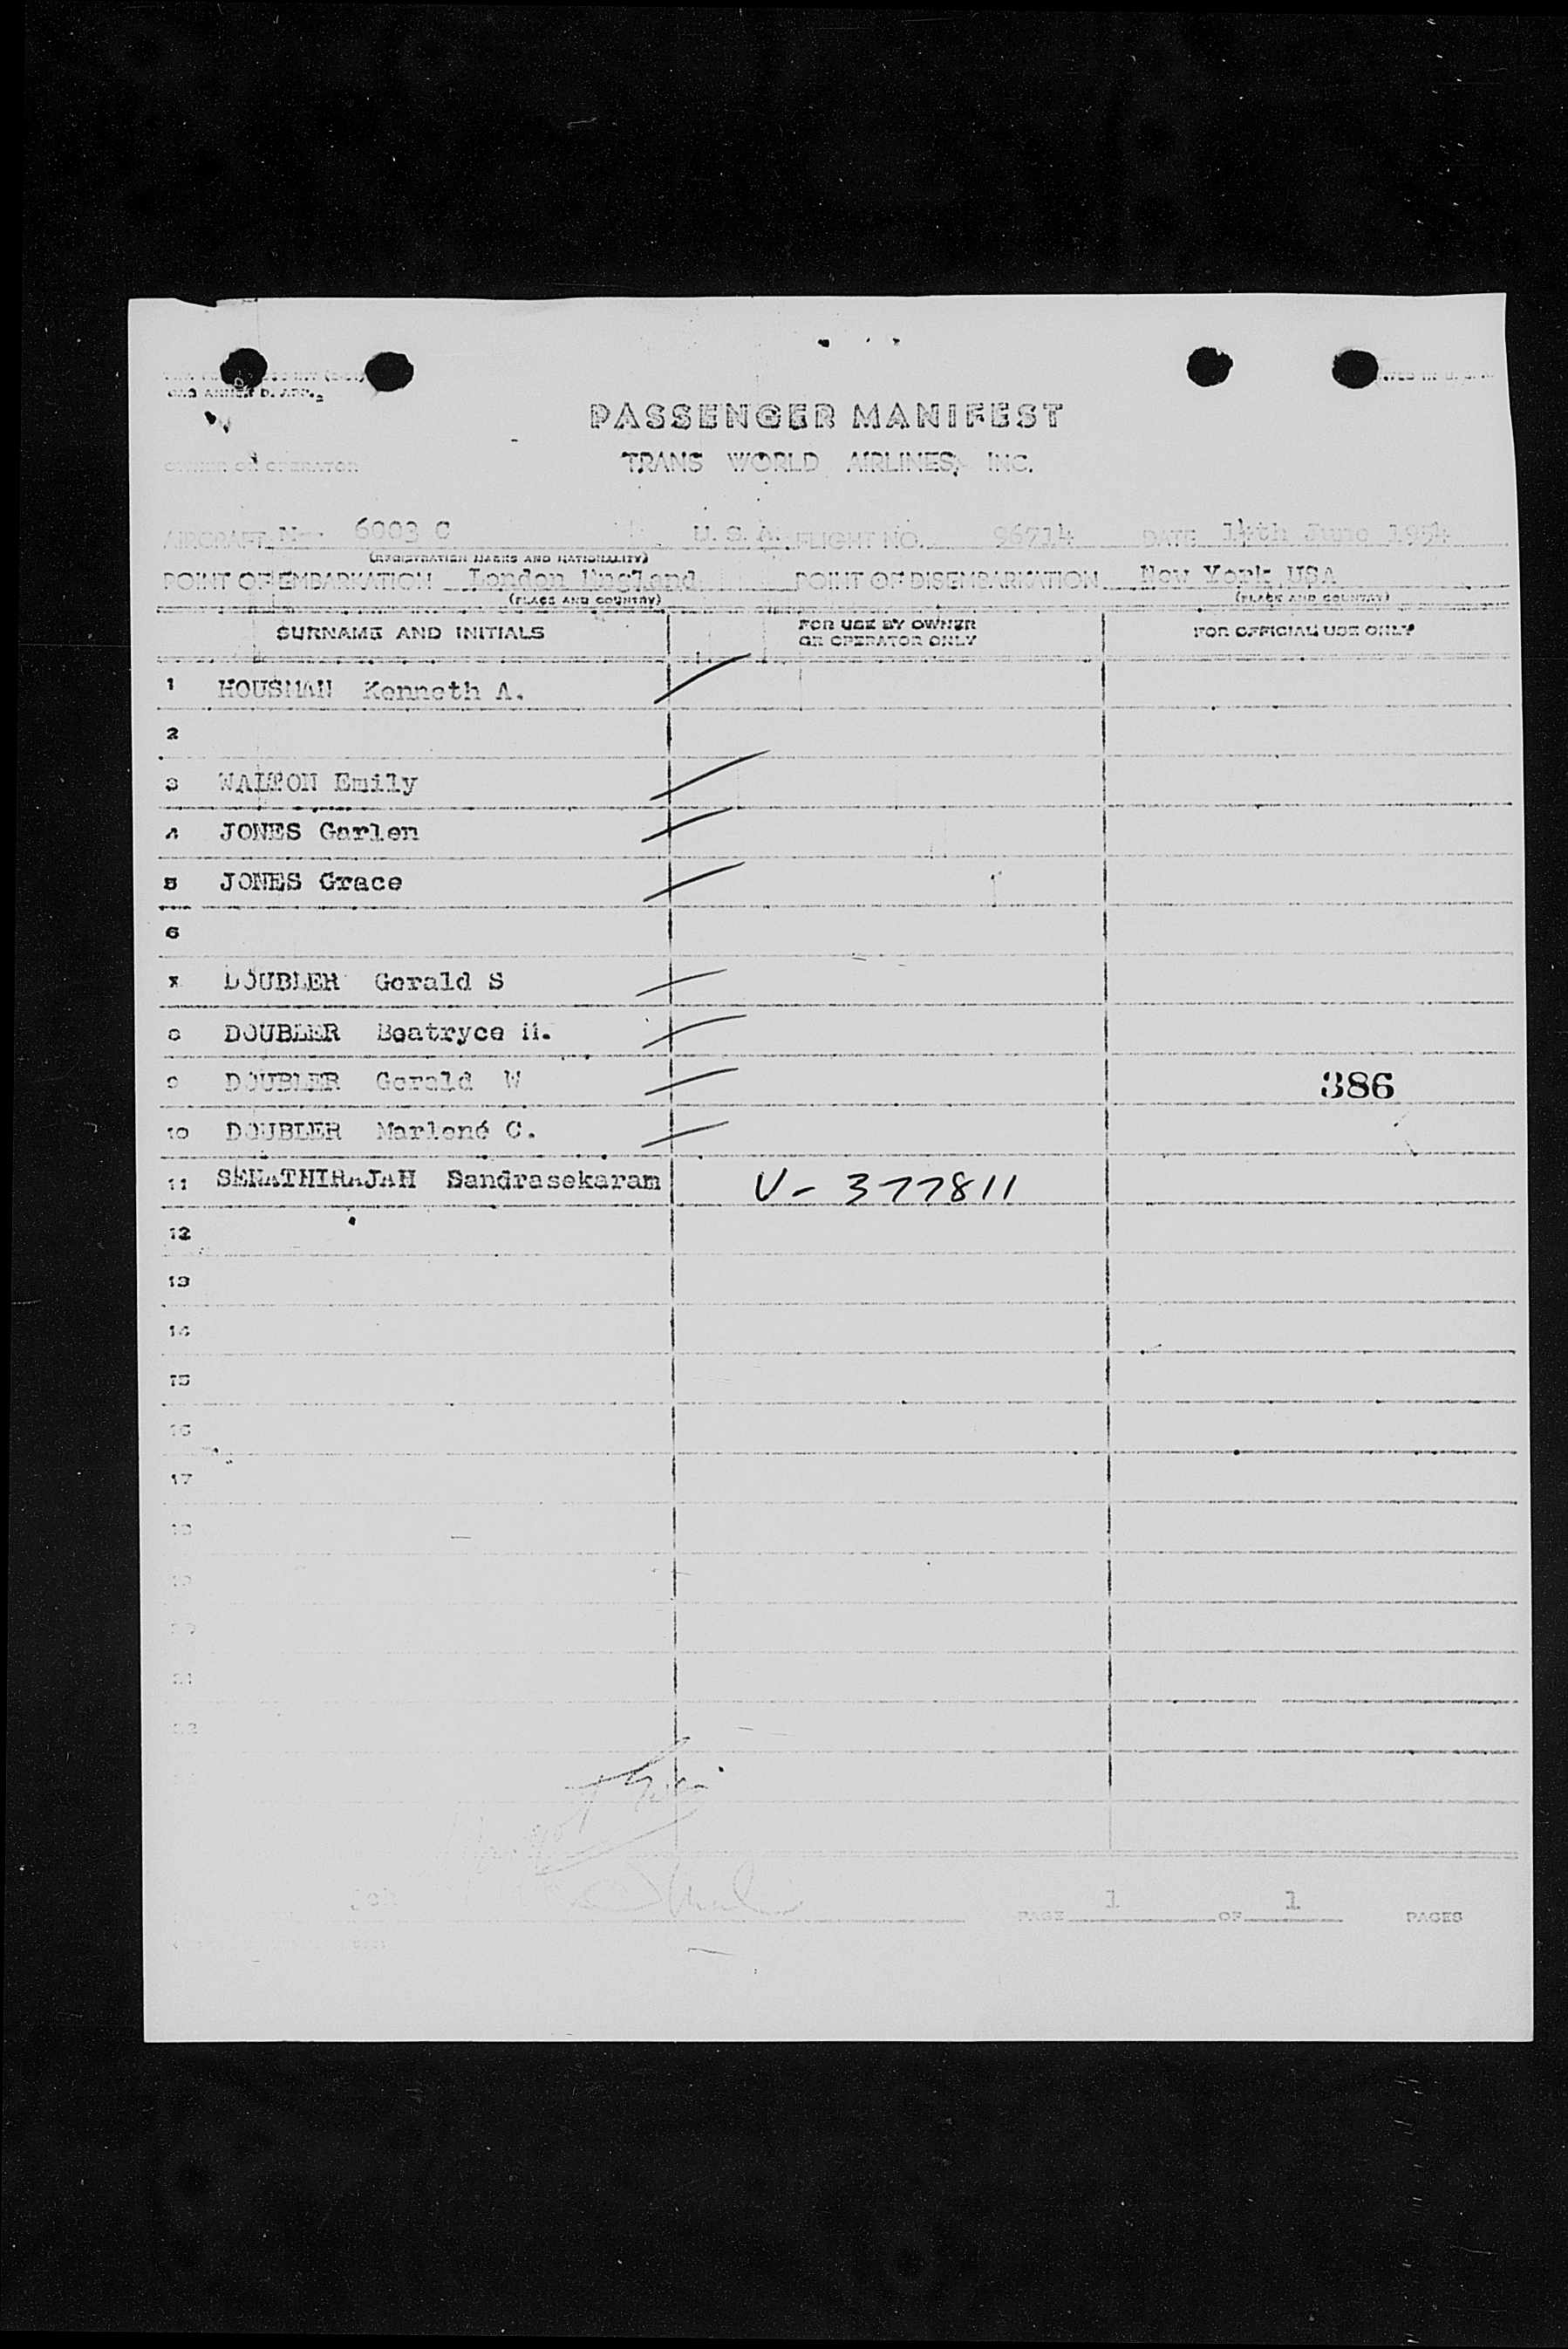 CAO ANNEX D. APP. 2
PASSENGER MANIFEST
OWNER OR OPERATOR TRANS WORLD AIRLINES, INC.
AIRCRAFT N 6003 C U. S. A. FLIGHT NO. 96714 DATE 14th June 1954
(REGISTRATION MARKS AND NATIONALITY)
POINT OF EMBARKATION London England POINT OF DISEMBARKATION New York USA
(PLACE AND COUNTRY) (PLACE AND COUNTRY)
SURNAME AND INITIALS FOR USE BY OWNER OR OPERATOR ONLY FOR OFFICIAL USE ONLY
1 HOUSMAN Kenneth A.
2
3 WALTON Emily
4 JONES Garlen
5 JONES Grace
6
DOUBLER Gerald S
8 DOUBLER Beatryce M.
9 DOUBLER Gerald W 386
10 DOUBLER Marlené C.
11 SENATHIRAJAH Sandrasekaram V- 377811
12
13
14
15
16
17
18
19
20
21
22
PAGE 1 OF 1 PAGES